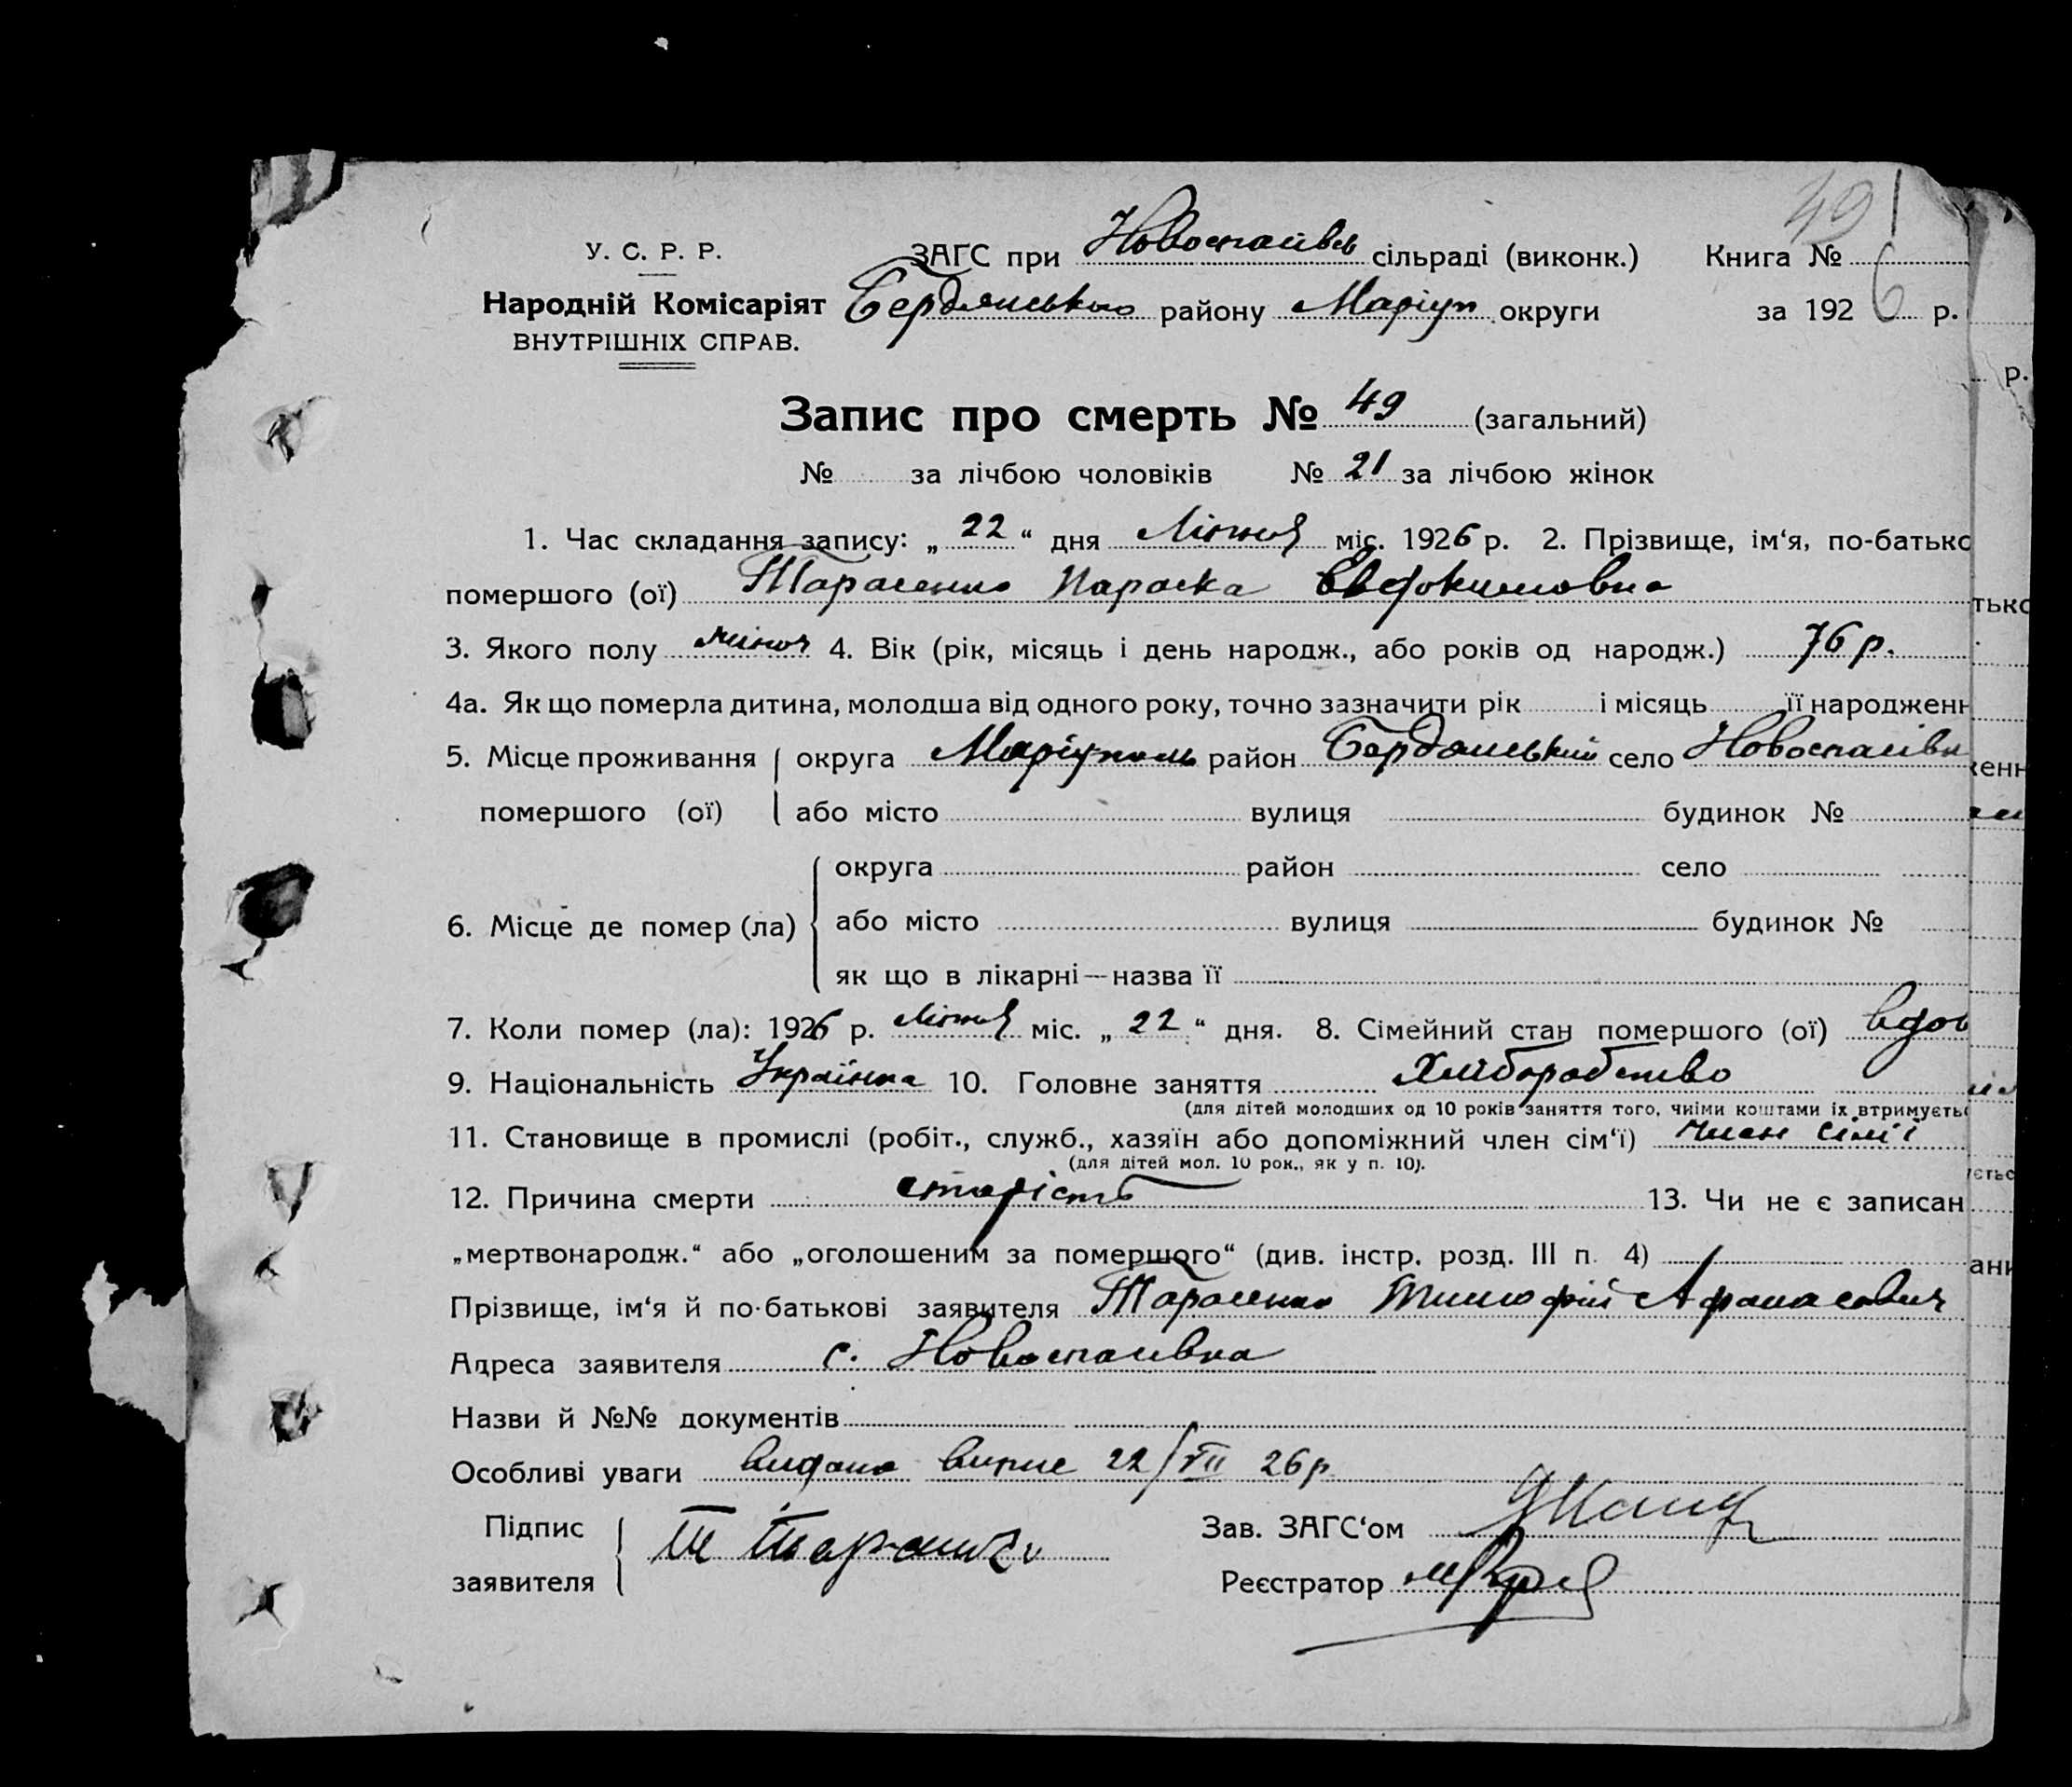 491
У. С. Р. Р.
ЗАГС при Новоспаівсь сільраді (виконк.) Книга №
Народній Комісаріят Бердянського району Маріуп округи за 1926 р.
ВНУТРІШНІХ СПРАВ.
р.
Запис про смерть № 49 (загальний)
№ за лічбою чоловіків № 21 за лічбою жінок
1. Час складання запису: „ 22 “ дня Липня міс. 1926 р. 2. Прізвище, ім‘я, по-батько
помершого (ої) Тарасенко Параска Евдокимовна
тько
3. Якого полу жіноч 4. Вік (рік, місяць і день народж., або років од народж.) 76 р.
4а. Як що померла дитина, молодша від одного року, точно зазначити рік і місяць її народженн
5. Місце проживання округа Маріуполь район Бердянський село Новоспаівк
женн
помершого (ої) або місто вулиця будинок №
округа район село
6. Місце де помер (ла) або місто вулиця будинок №
як що в лікарні—назва її
7. Коли помер (ла): 1926 р. Липня міс. „ 22 “ дня. 8. Сімейний стан помершого (ої) вдов
9. Національність Українка 10. Головне заняття Хліборобство
(для дітей молодших од 10 років заняття того, чиіми коштами іх втримуєтьс
11. Становище в промислі (робіт., служб., хазяїн або допоміжний член сім‘ї) член сімї
(для дітей мол. 10 рок., як у п. 10).
ується
12. Причина смерти старість 13. Чи не є записан
„мертвонародж.“ або „оголошеним за помершого“ (див. інстр. розд. III п. 4)
ани
Прізвище, ім‘я й по-батькові заявителя Тарасенко Тимофій Афанасович
Адреса заявителя с. Новоспаівка
Назви й №№ документів
Особливі уваги видано випис 22/VII 26 р
Підпис заявителя Т Тарасенко
Зав. ЗАГС‘ом
Реєстратор